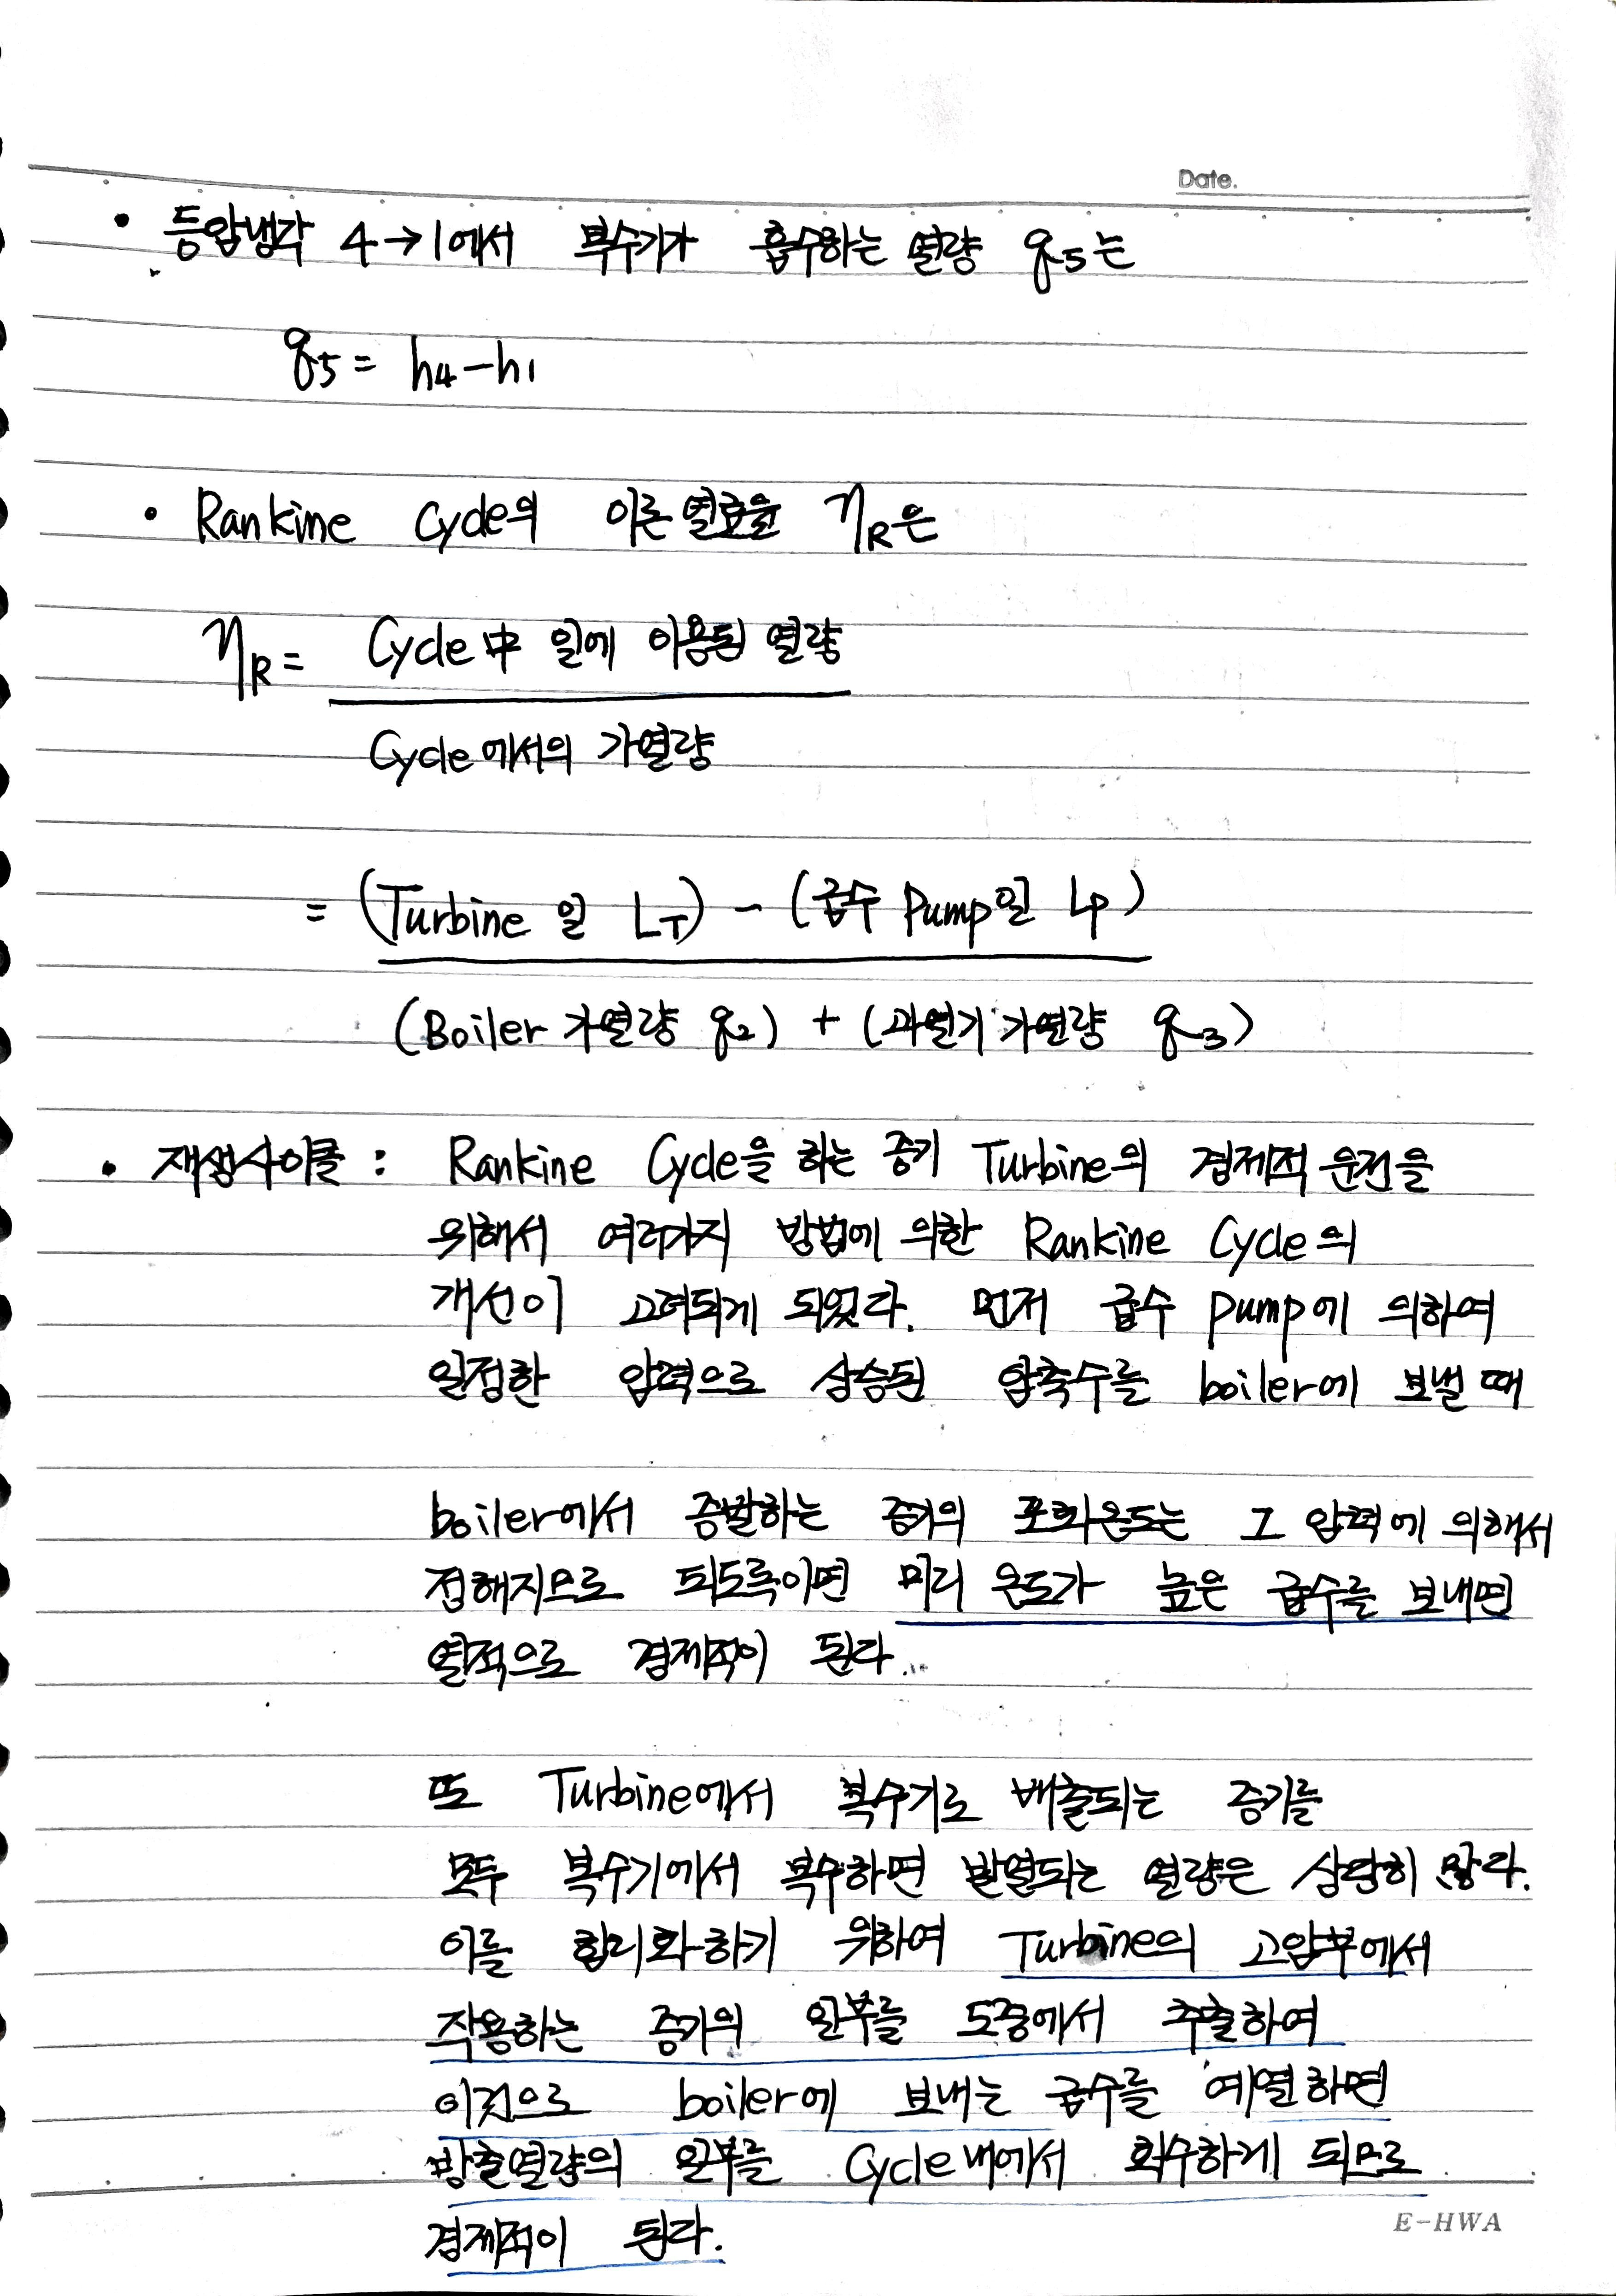 Date.
• 등압냉각 4→1에서 복수기가 흡수하는 열량 q5는
q5 = h4-h1
• Rankine Cycle의 이론 열효율 ηR은
ηR = Cycle中 일에 이용된 열량
Cycle에서의 가열량
= (Turbine 일 LT) - (급수 Pump일 LP)
(Boiler 가열량 q2) + (과열기 가열량 q3)
• 재생사이클 : Rankine Cycle을 하는 증기 Turbine의 경제적 운전을
위해서 여러가지 방법에 의한 Rankine Cycle의
개선이 고려되게 되었다. 먼저 급수 pump에 의하여
일정한 압력으로 상승된 압축수를 boiler에 보낼 때
boiler에서 증발하는 증기의 포화온도는 그 압력에 의해서
정해지므로 되도록이면 미리 온도가 높은 급수를 보내면
열적으로 경제적이 된다.
또 Turbine에서 복수기로 배출되는 증기를
모두 복수기에서 복수하면 발열되는 열량은 상당히 많다.
이를 합리화하기 위하여 Turbine의 고압부에서
작용하는 증기의 일부를 도중에서 추출하여
이것으로 boiler에 보내는 급수를 예열하면
방출열량의 일부를 Cycle내에서 회수하게 되므로
경제적이 된다.
E-HWA